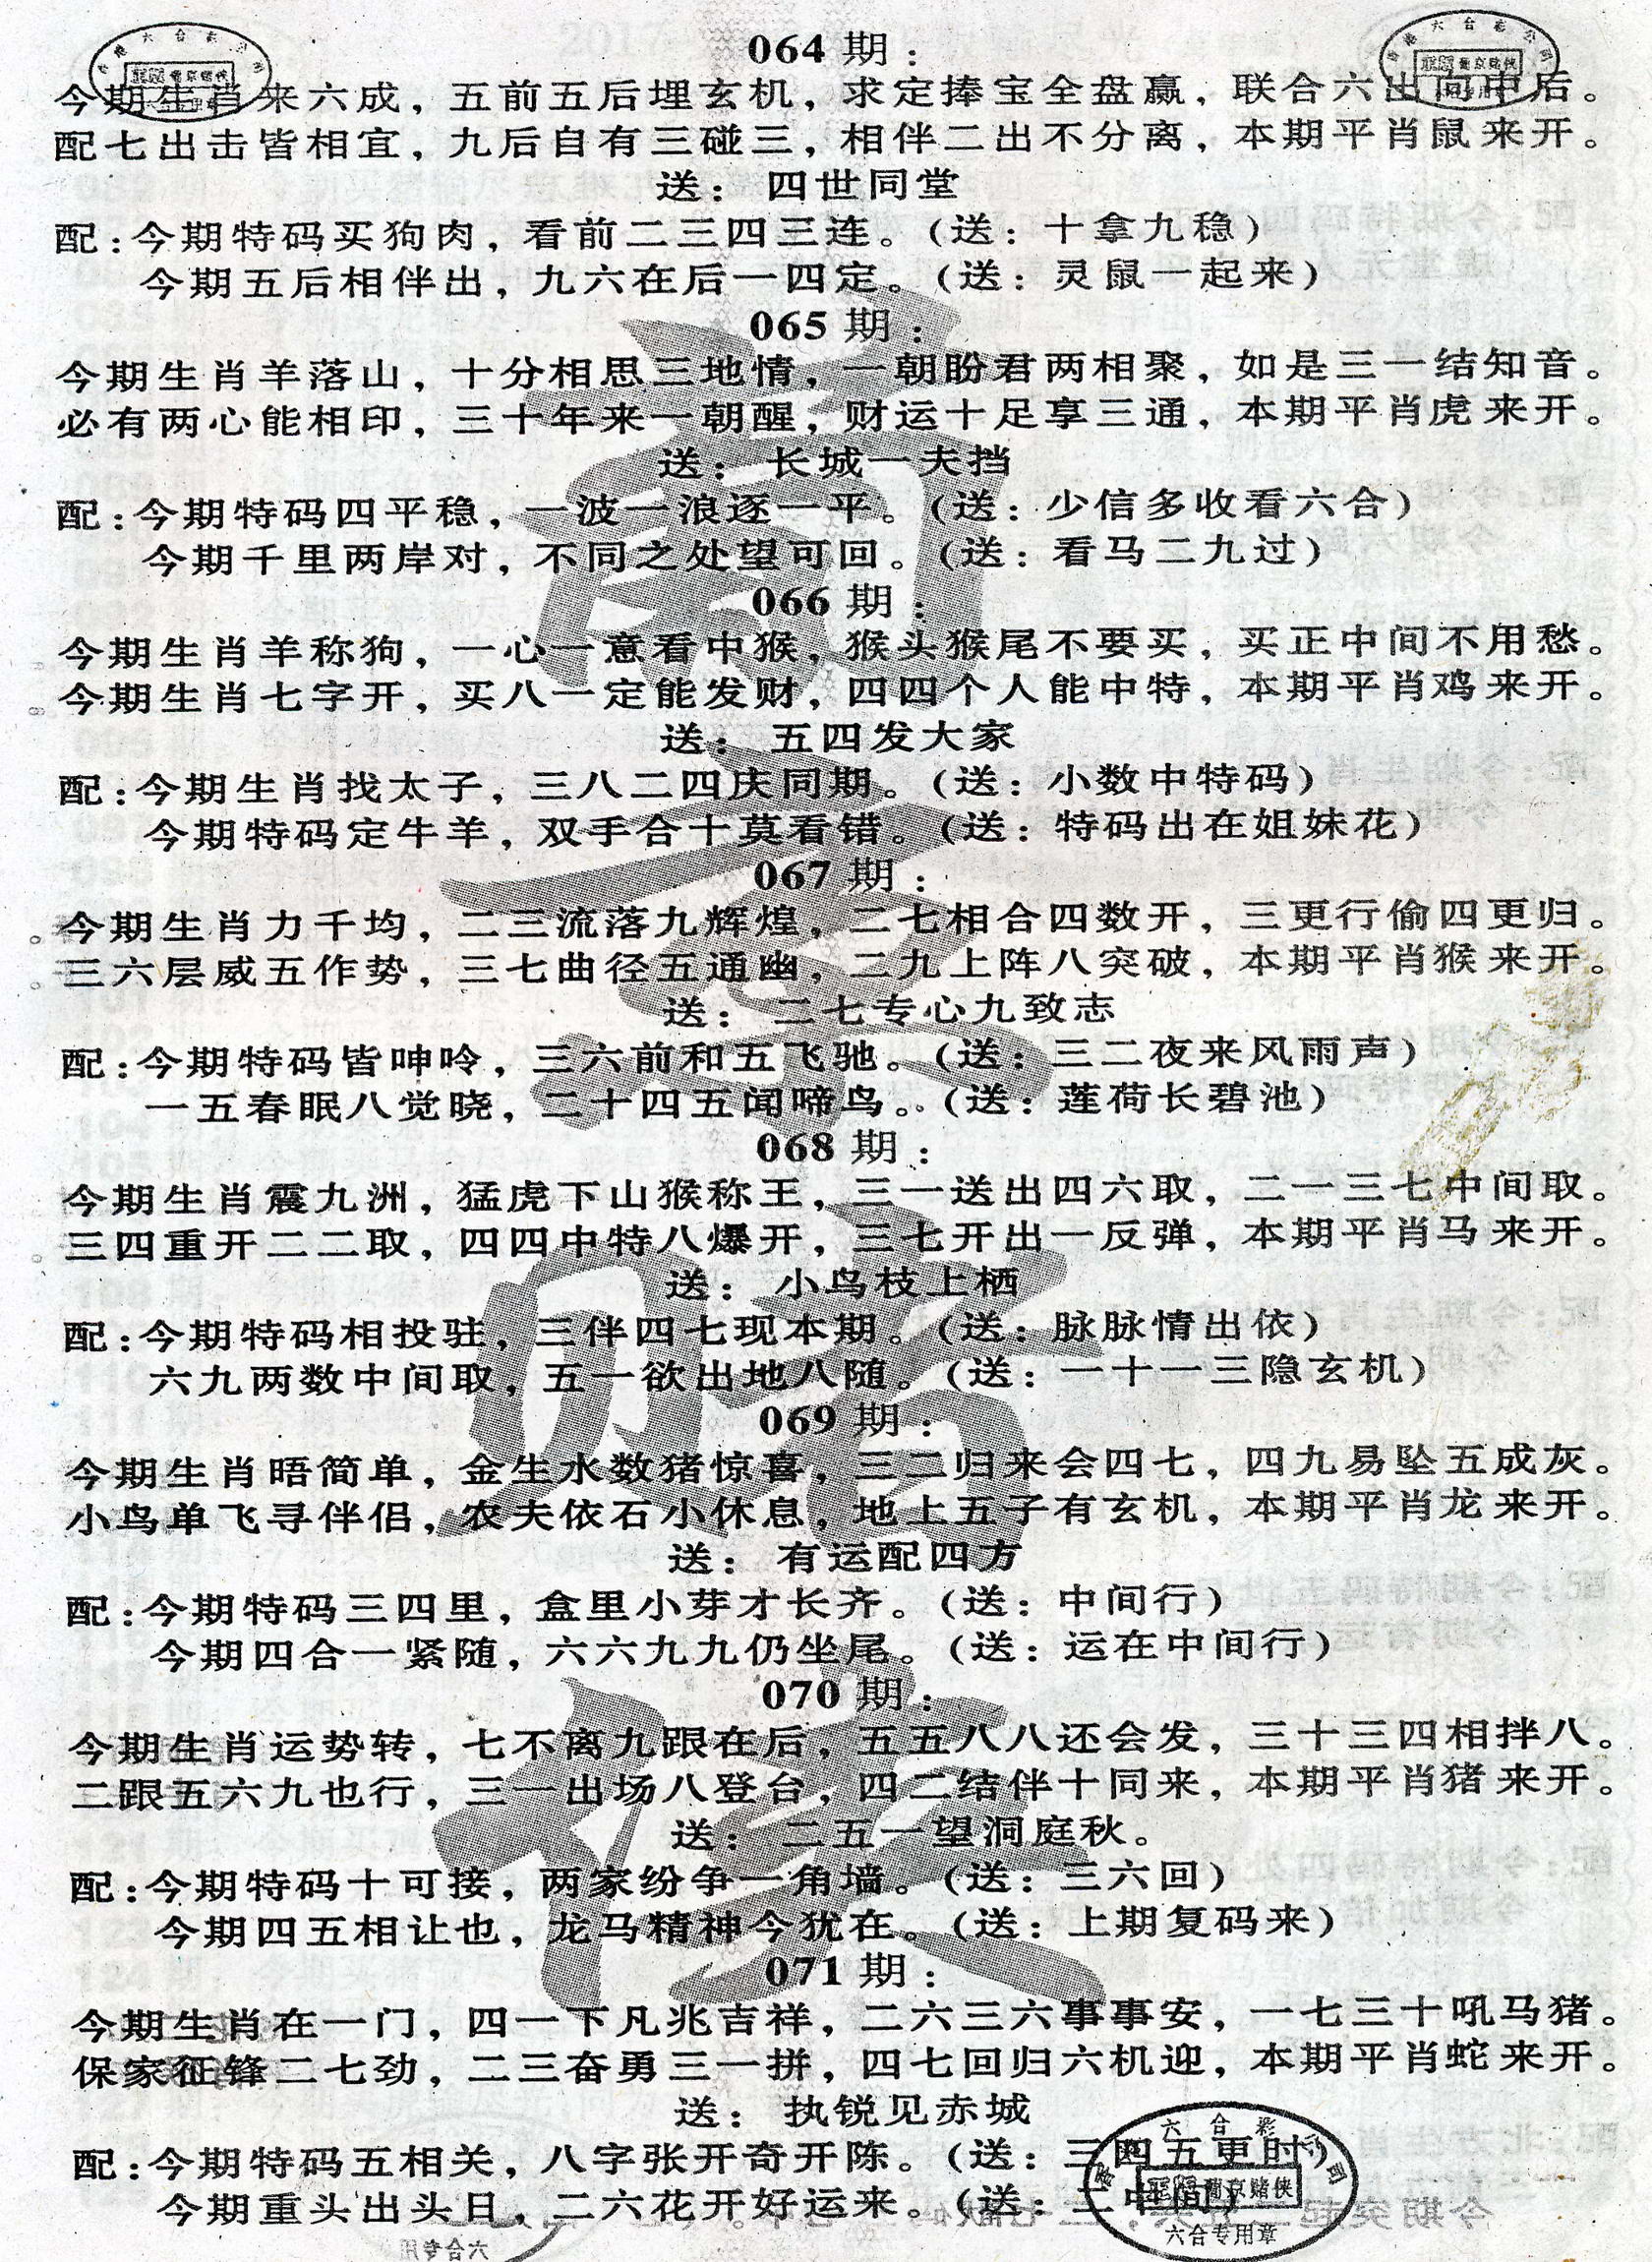 064 期：
今期生肖来六成，五前五后埋玄机，求定捧宝全盘赢，联合六出向中后。
配七出击皆相宜，九后自有三碰三，相伴二出不分离，本期平肖鼠来开。
送：四世同堂
配：今期特码买狗肉，看前二三四三连。（送：十拿九稳）
今期五后相伴出，九六在后一四定。（送：灵鼠一起来）
065 期：
今期生肖羊落山，十分相思三地情，一朝盼君两相聚，如是三一结知音。
必有两心能相印，三十年来一朝醒，财运十足享三通，本期平肖虎来开。
送：长城一夫挡
配：今期特码四平稳，一波一浪逐一平。（送：少信多收看六合）
今期千里两岸对，不同之处望可回。（送：看马二九过）
066 期：
今期生肖羊称狗，一心一意看中猴，猴头猴尾不要买，买正中间不用愁。
今期生肖七字开，买八一定能发财，四四个人能中特，本期平肖鸡来开。
送：五四发大家
配：今期生肖找太子，三八二四庆同期。（送：小数中特码）
今期特码定牛羊，双手合十莫看错。（送：特码出在姐妹花）
067 期：
今期生肖力千均，二三流落九辉煌，二七相合四数开，三更行偷四更归。
三六层威五作势，三七曲径五通幽，二九上阵八突破，本期平肖猴来开。
送：二七专心九致志
配：今期特码皆呻吟，三六前和五飞驰。（送：三二夜来风雨声）
一五春眠八觉晓，二十四五闻啼鸟。（送：莲荷长碧池）
068 期：
今期生肖震九洲，猛虎下山猴称王，三一送出四六取，二一三七中间取。
三四重开二二取，四四中特八爆开，三七开出一反弹，本期平肖马来开。
送：小鸟枝上栖
配：今期特码相投驻，三伴四七现本期。（送：脉脉情出依）
六九两数中间取，五一欲出地八随。（送：一十一三隐玄机）
069 期：
今期生肖晤简单，金生水数猪惊喜，三二归来会四七，四九易坠五成灰。
小鸟单飞寻伴侣，农夫依石小休息，地上五子有玄机，本期平肖龙来开。
送：有运配四方
配：今期特码三四里，盒里小芽才长齐。（送：中间行）
今期四合一紧随，六六九九仍坐尾。（送：运在中间行）
070 期：
今期生肖运势转，七不离九跟在后，五五八八还会发，三十三四相拌八。
二跟五六九也行，三一出场八登台，四二结伴十同来，本期平肖猪来开。
送：二五一望洞庭秋。
配：今期特码十可接，两家纷争一角墙。（送：三六回）
今期四五相让也，龙马精神今犹在。（送：上期复码来）
071 期：
今期生肖在一门，四一下凡兆吉祥，二六三六事事安，一七三十吼马猪。
保家征锋二七劲，二三奋勇三一拼，四七回归六机迎，本期平肖蛇来开。
送：执锐见赤城
配：今期特码五相关，八字张开奇开陈。（送：三四五更时）
今期重头出头日，二六花开好运来。（送：二中间）
葡京赌侠
六合专用章